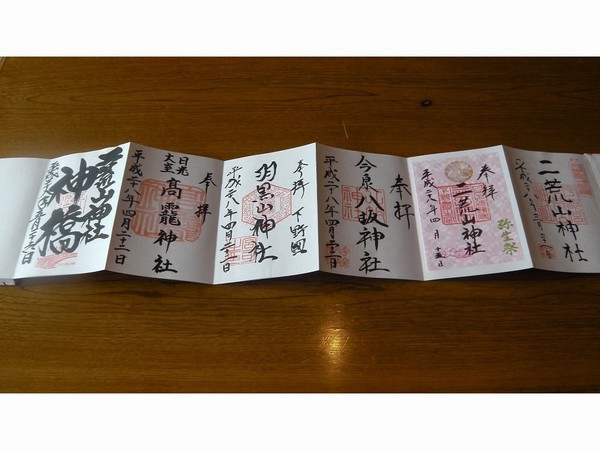 二荒山神社
奉拝
二荒山神社
弥生祭
平成二十八年四月十五日
奉拝
今原八坂神社
平成二十八年四月二十二日
奉拝 下野國
羽黒山神社
平成二十八年四月二十二日
奉拝
日光
大室
高龗神社
平成二十八年四月二十二日
二荒山神社
神橋